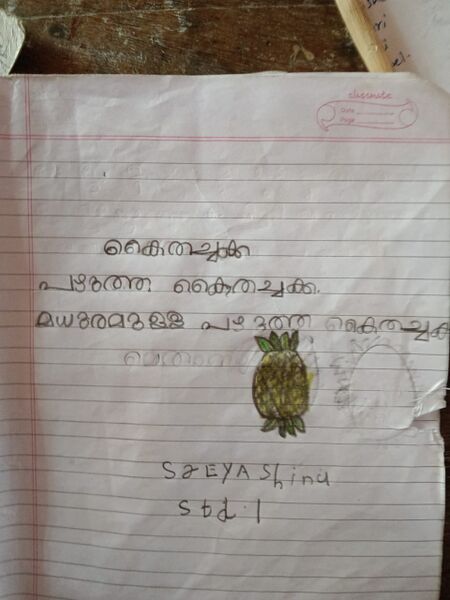 classmate
Date
Page
കൈതച്ചക്ക
പഴുത്ത കൈതച്ചക്ക.
മധുരമുള്ള പഴുത്ത കൈതച്ചക്ക
SREYA Shinu
Std. 1